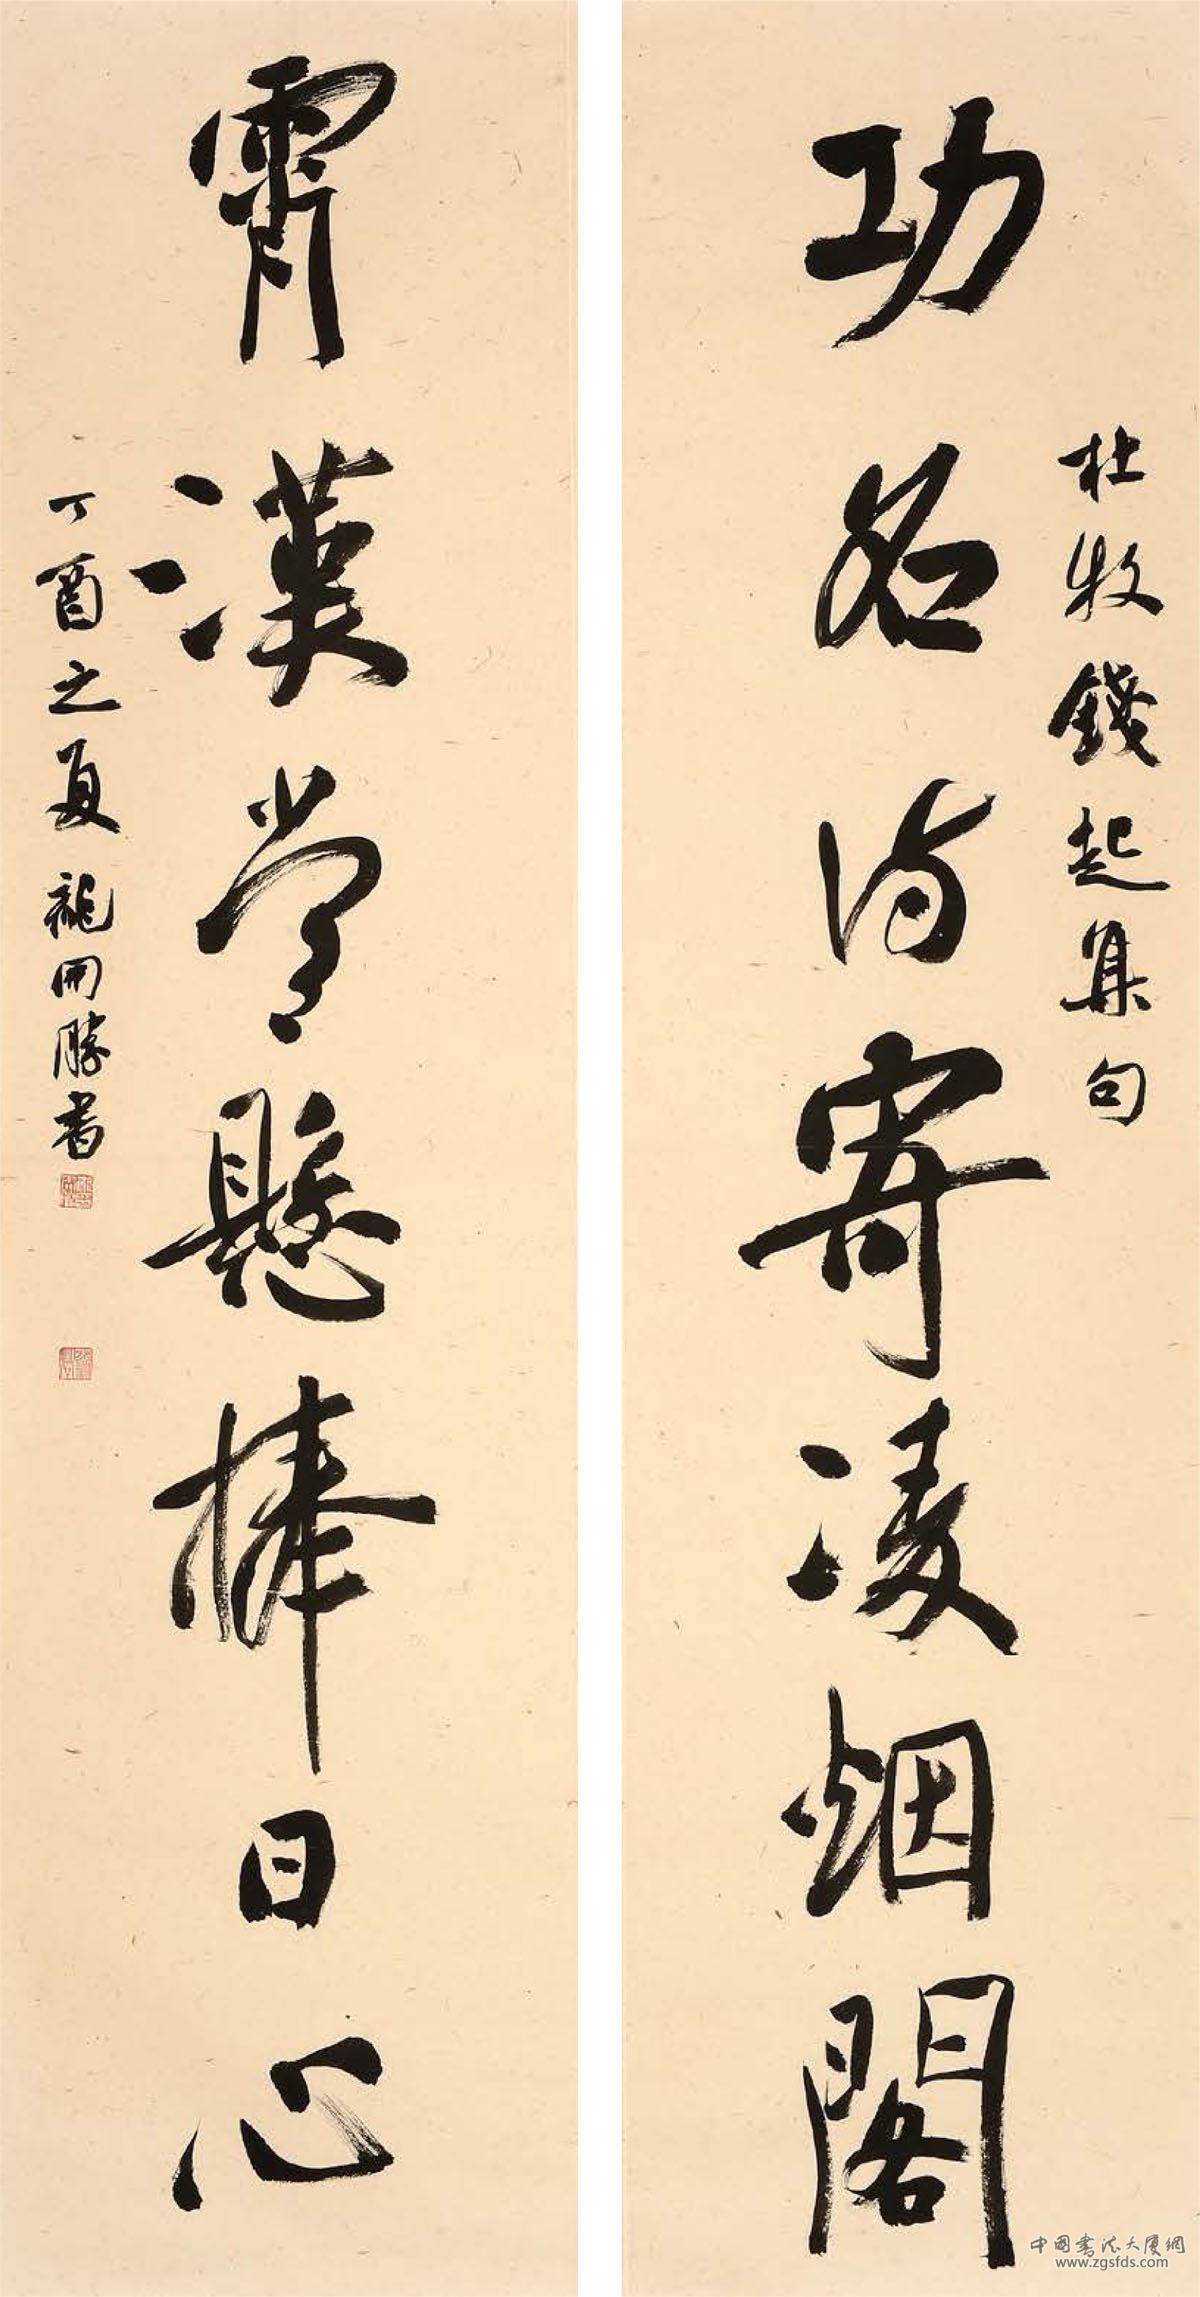 杜牧錢起集句
功名待寄凌烟閣
霄漢常懸捧日心
丁酉之夏龍開勝書
中国書法大厦網
www.zgsfds.com